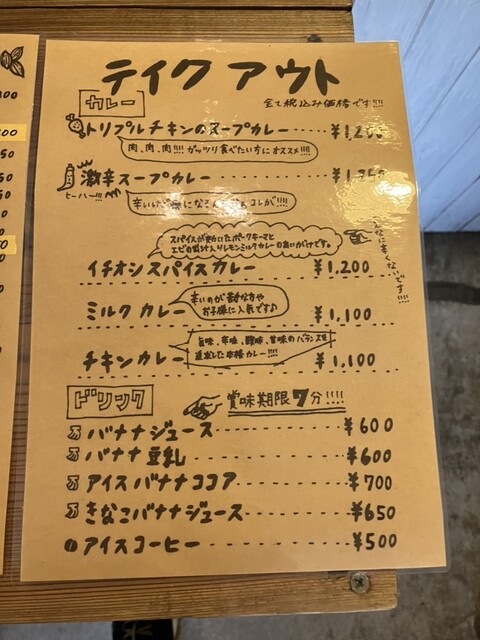 テイク アウト
全て税込み価格です!!!!
カレー
トリプルチキンのスープカレー ¥1,200
肉、肉、肉!!!! ガッツリ食べたい方にオススメ!!!!
激辛スープカレー
ヒーハー!!!
スパイスが効いたポークキーマと
エビの出汁入りレモンミルクカレーのあいがけです。
そんなに辛くないです!!!!
イチオシスパイスカレー ¥1,200
辛いのが苦手な方や
お子様に人気です♪
ミルクカレー ¥1,100
旨味、辛味、酸味、甘味のバランスを
追求した本格カレー!!!!
チキンカレー ¥1,100
ドリンク
賞味期限7分!!!!
バナナジュース ¥600
バナナ豆乳 ¥600
アイスバナナココア ¥700
きなこバナナジュース ¥650
アイスコーヒー ¥500